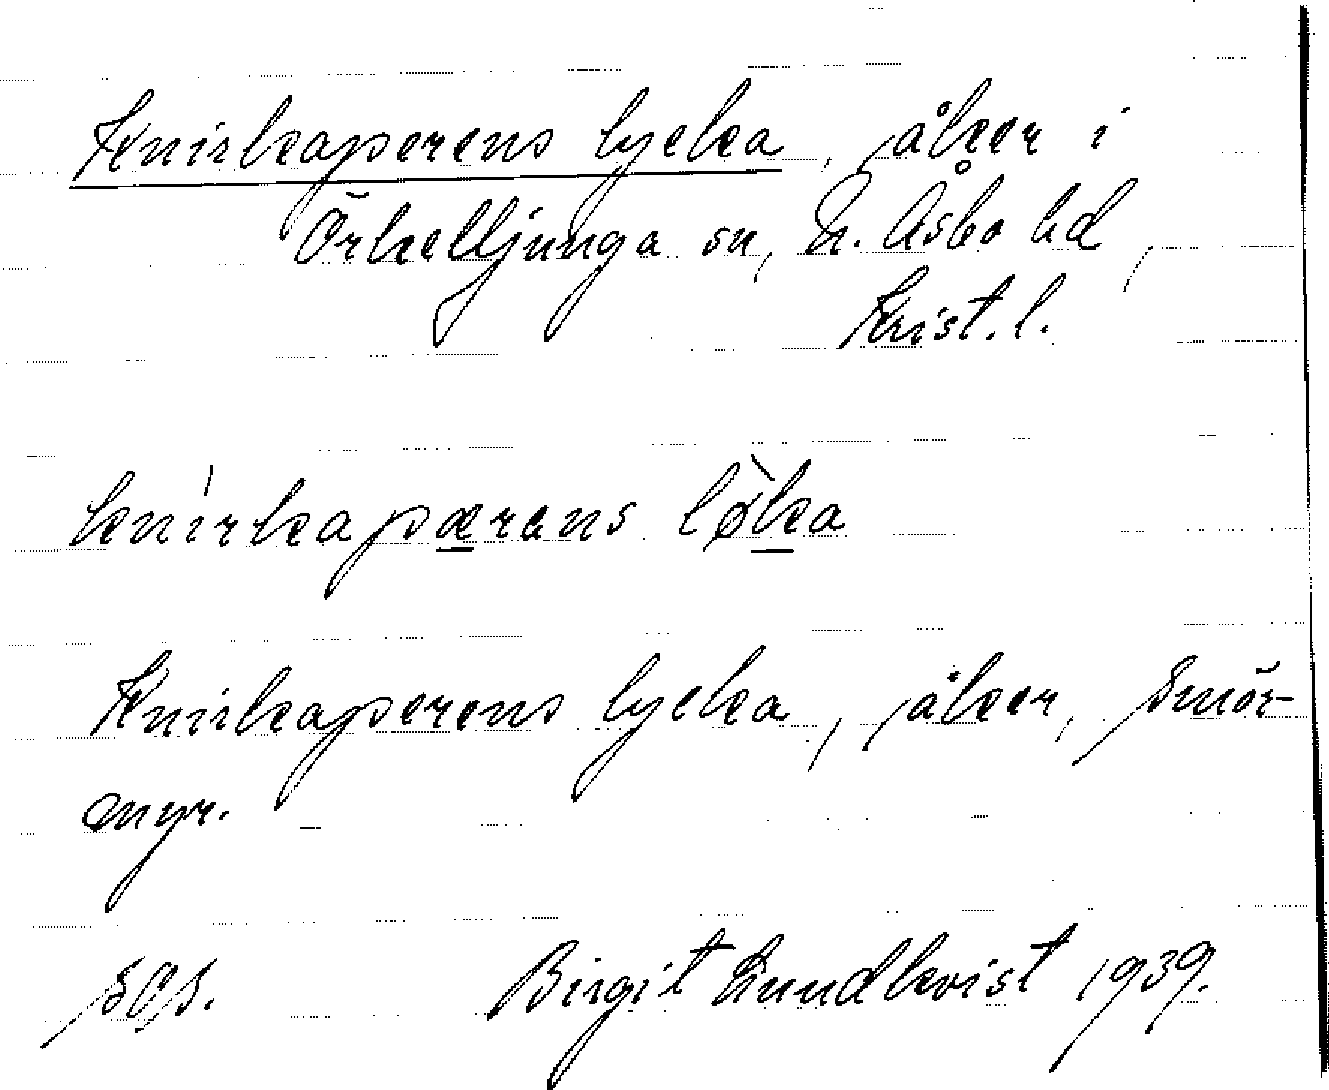 Knirkaperens lycka, åker i
Örkelljunga sn, N. Åsbo hd,
Krist. l.
knìrkapæ̱rans lø̀ḵa
Knirkaperens lycka, åker, Smör-
myr.
Birgit Lundkvist 1939.